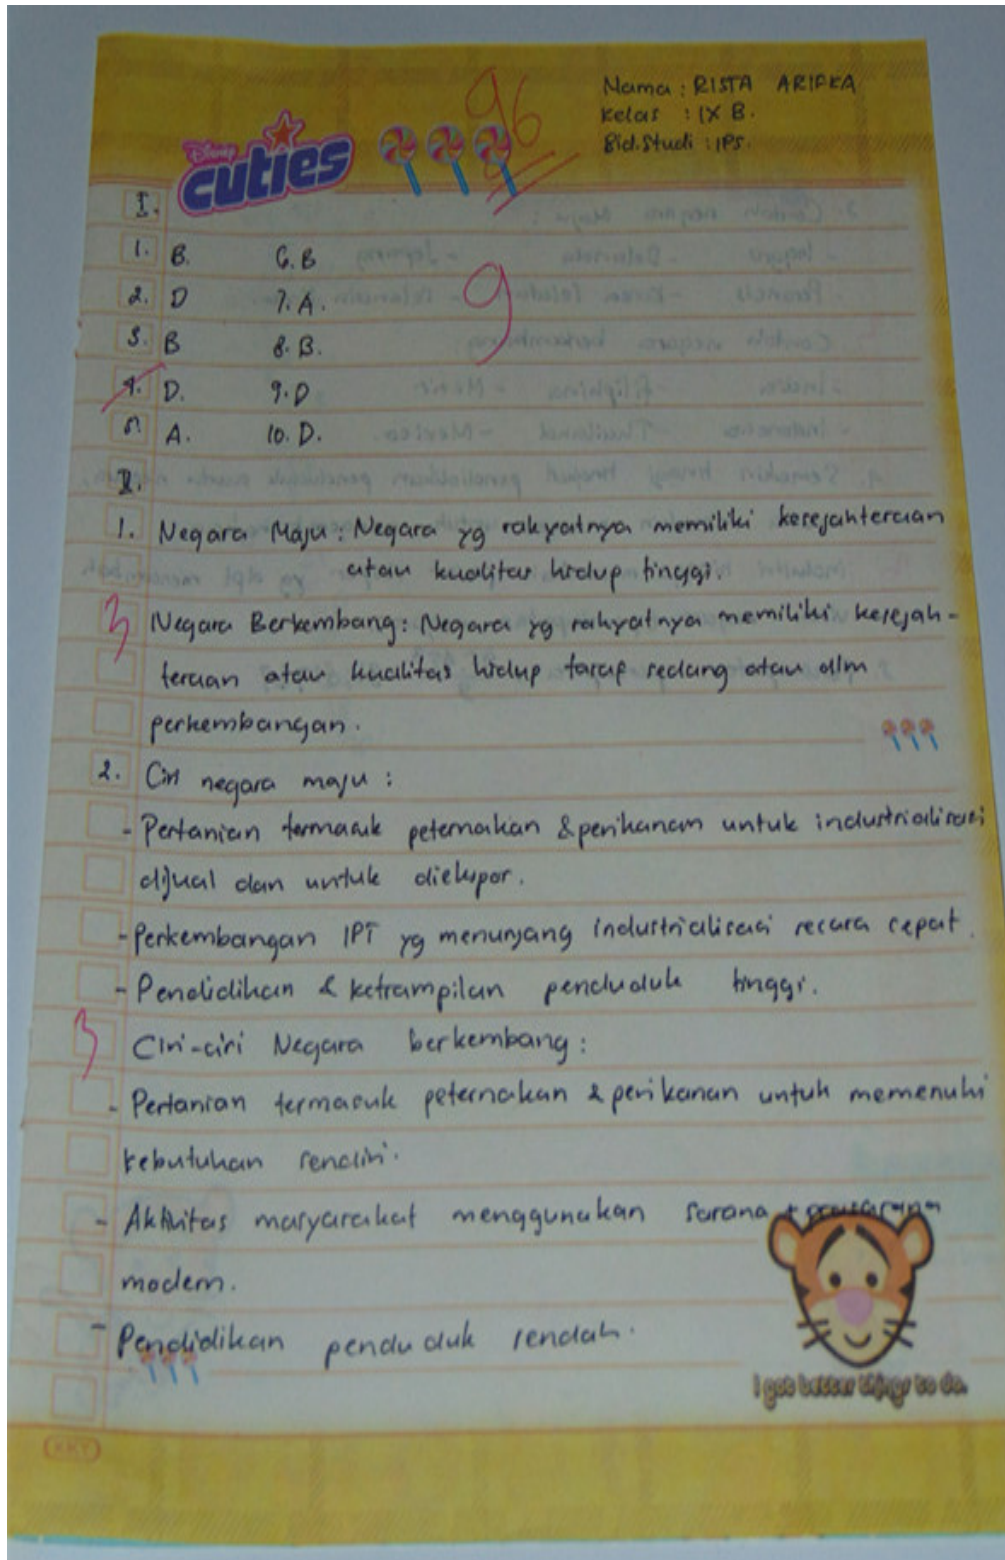 96
Nama : RISTA ARIFKA
Kelas : IX B.
Bid.Studi : IPS.
Disney
cuties
I.
1. B. 6. B
2. D 7. A.
3. B 8. B.
4. D. 9. D
5. A. 10. D.
9
II.
1. Negara Maju : Negara yg rakyatnya memiliki kesejahteraan
atau kualitas hidup tinggi.
3
Negara Berkembang : Negara yg rakyatnya memiliki kesejah-
teraan atau kualitas hidup taraf sedang atau dlm
perkembangan.
2. Ciri negara maju :
- Pertanian termasuk peternakan & perikanan untuk industrialisasi
dijual dan untuk diekspor.
- Perkembangan IPT yg menunjang industrialisasi secara cepat.
- Pendidikan & ketrampilan penduduk tinggi.
3
Ciri-ciri Negara berkembang :
- Pertanian termasuk peternakan & perikanan untuk memenuhi
kebutuhan sendiri.
- Aktivitas masyarakat menggunakan sarana + prasarana
modern.
- Pendidikan penduduk rendah.
I got better things to do.
KKY